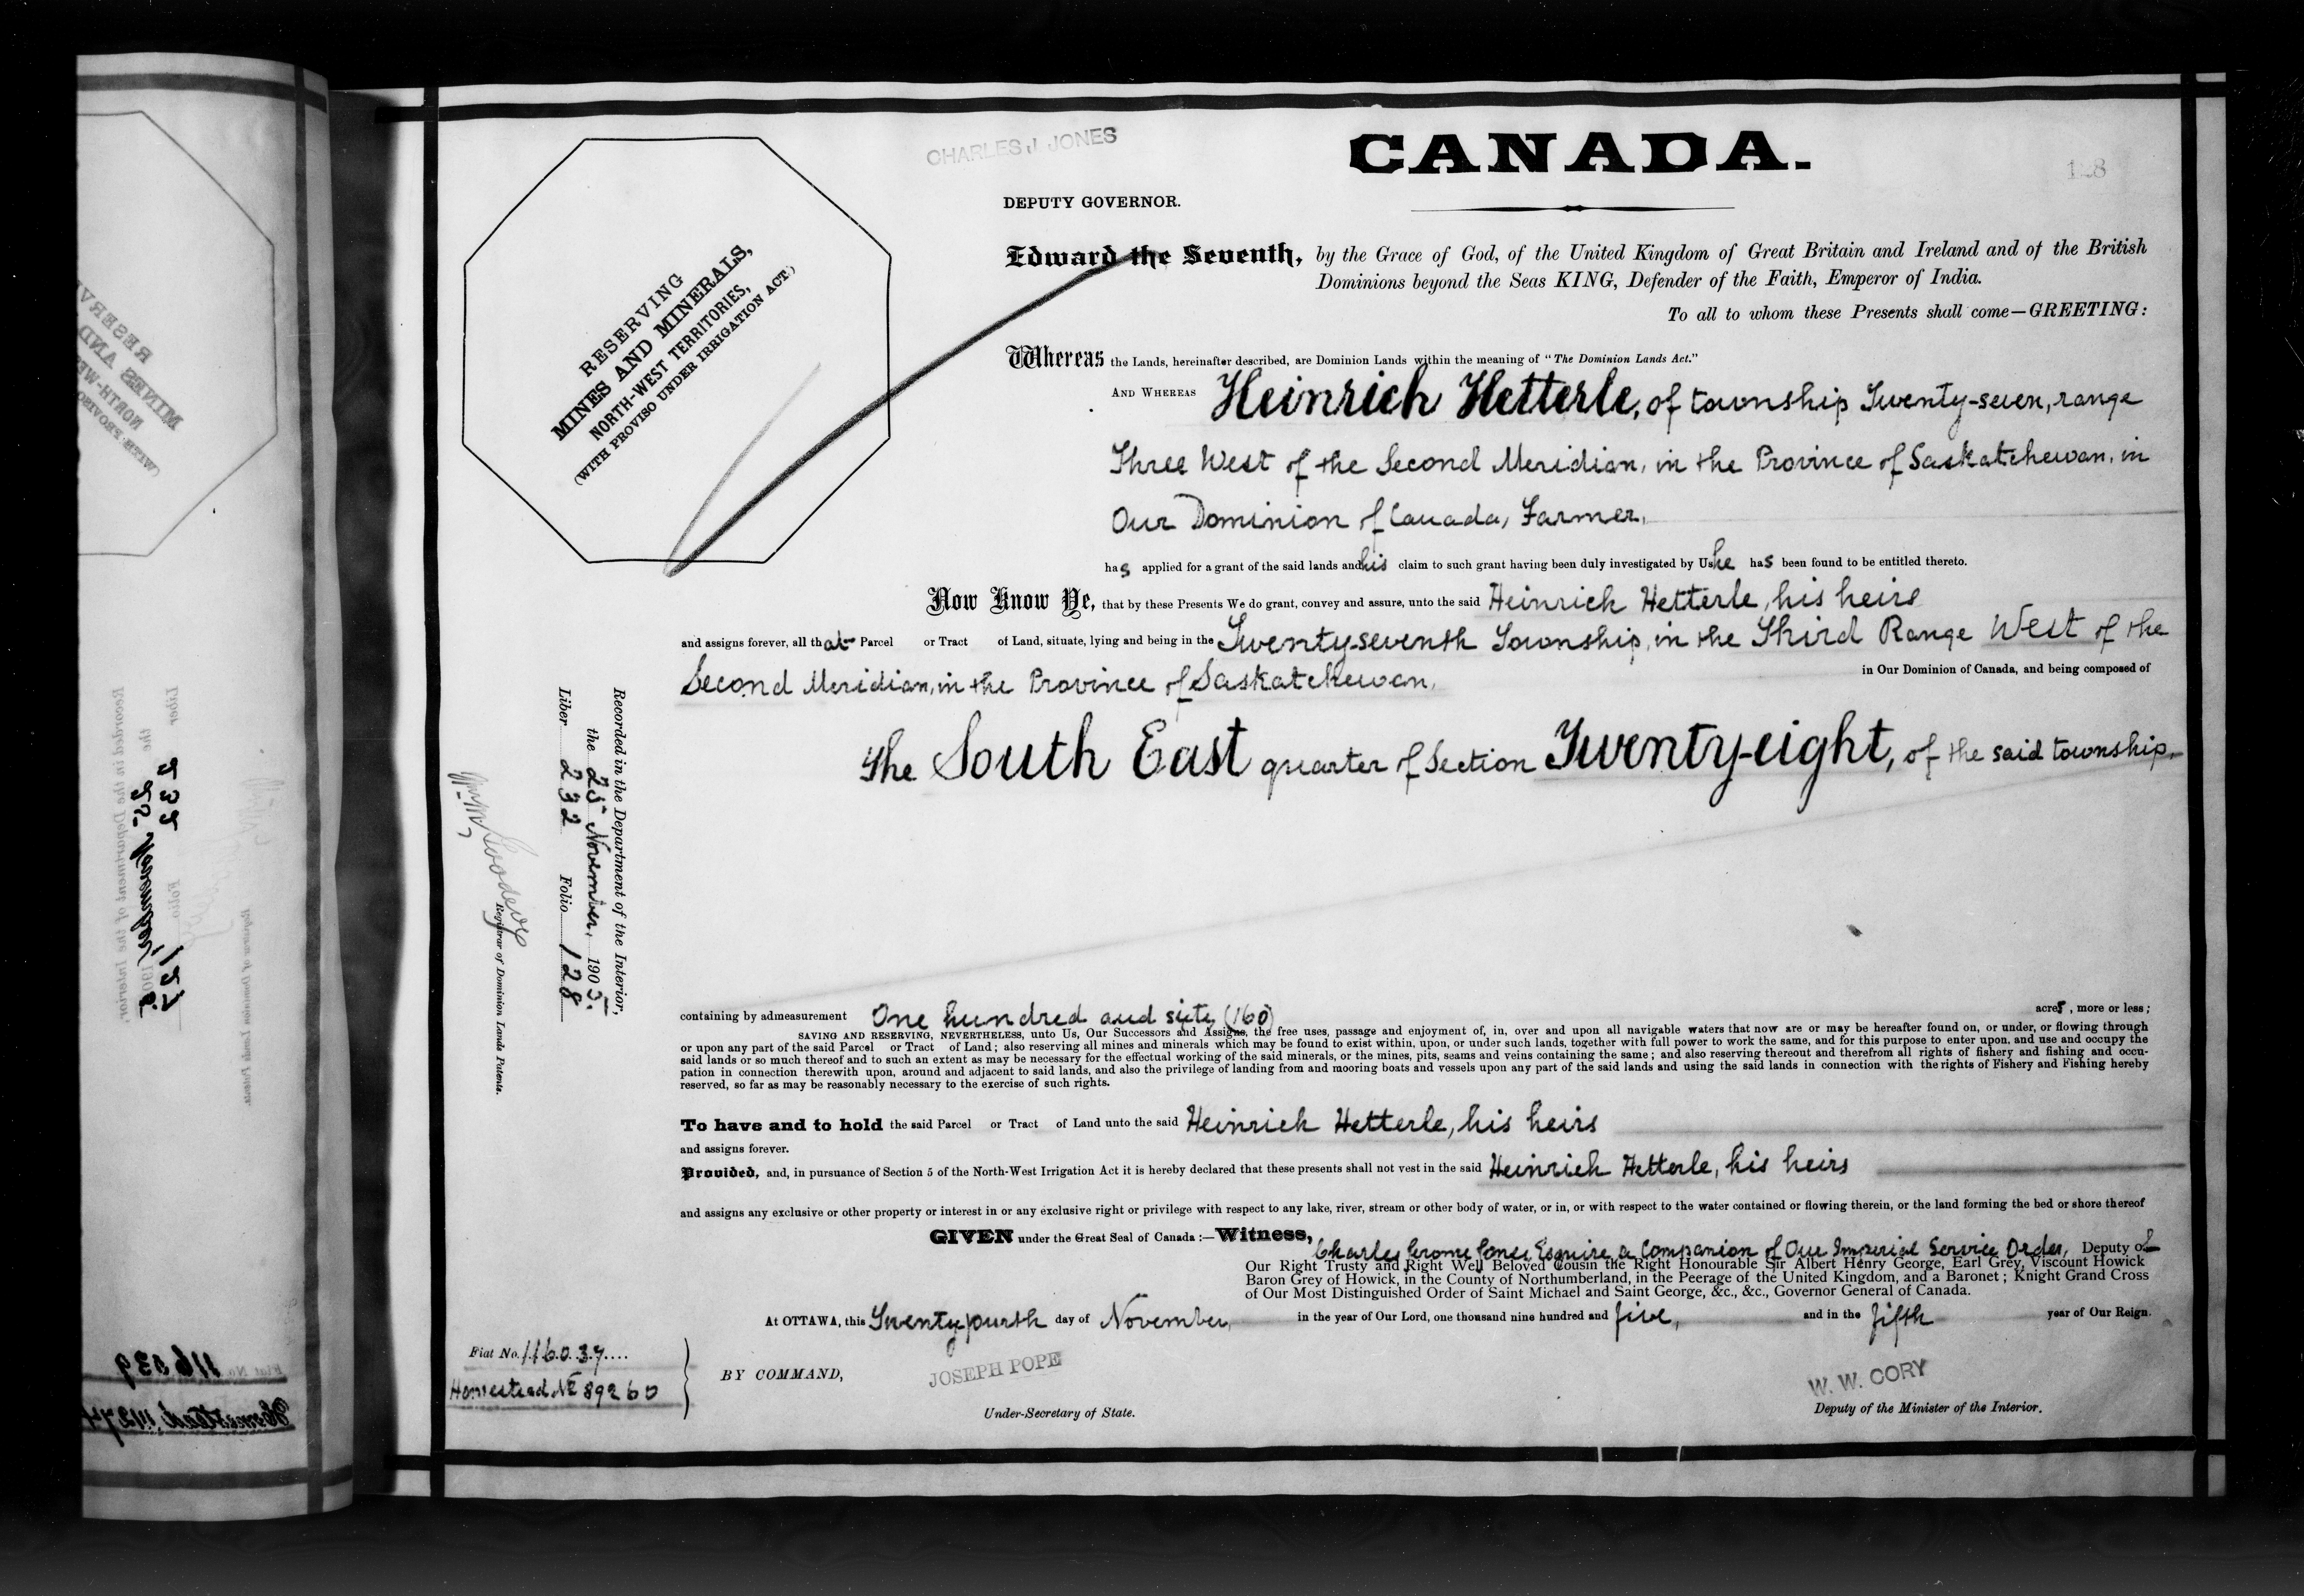 CHARLES J JONES
CANADA.
128
DEPUTY GOVERNOR.
RESERVING
MINES AND MINERALS,
NORTH-WEST TERRITORIES,
(WITH PROVISO UNDER IRRIGATION ACT)
Edward the Seventh, by the Grace of God, of the United Kingdom of Great Britain and Ireland and of the British
Dominions beyond the Seas KING, Defender of the Faith, Emperor of India.
To all to whom these Presents shall come—GREETING:
Whereas the Lands, hereinafter described, are Dominion Lands within the meaning of "The Dominion Lands Act."
AND WHEREAS Heinrich Hetterle, of township Twenty-seven, range
Three West of the Second Meridian, in the Province of Saskatchewan, in
Our Dominion of Canada, Farmer,
has applied for a grant of the said lands and his claim to such grant having been duly investigated by Us he has been found to be entitled thereto.
Now Know Ye, that by these Presents We do grant, convey and assure, unto the said Heinrich Hetterle, his heirs
and assigns forever, all that Parcel or Tract of Land, situate, lying and being in the Twenty-seventh Township, in the Third Range West of the
Second Meridian, in the Province of Saskatchewan, in Our Dominion of Canada, and being composed of
The South East quarter of Section Twenty-eight, of the said township.
Recorded in the Department of the Interior,
the 25 November, 1905.
Liber 232 Folio 128
Registrar of Dominion Lands Patents.
containing by admeasurement One hundred and sixty (160) acres, more or less;
SAVING AND RESERVING, NEVERTHELESS, unto Us, Our Successors and Assigns, the free uses, passage and enjoyment of, in, over and upon all navigable waters that now are or may be hereafter found on, or under, or flowing through
or upon any part of the said Parcel or Tract of Land; also reserving all mines and minerals which may be found to exist within, upon, or under such lands, together with full power to work the same, and for this purpose to enter upon, and use and occupy the
said lands or so much thereof and to such an extent as may be necessary for the effectual working of the said minerals, or the mines, pits, seams and veins containing the same; and also reserving thereout and therefrom all rights of fishery and fishing and occu-
pation in connection therewith upon, around and adjacent to said lands, and also the privilege of landing from and mooring boats and vessels upon any part of the said lands and using the said lands in connection with the rights of Fishery and Fishing hereby
reserved, so far as may be reasonably necessary to the exercise of such rights.
To have and to hold the said Parcel or Tract of Land unto the said Heinrich Hetterle, his heirs
and assigns forever.
Provided, and, in pursuance of Section 5 of the North-West Irrigation Act it is hereby declared that these presents shall not vest in the said Heinrich Hetterle, his heirs
and assigns any exclusive or other property or interest in or any exclusive right or privilege with respect to any lake, river, stream or other body of water, or in, or with respect to the water contained or flowing therein, or the land forming the bed or shore thereof
GIVEN under the Great Seal of Canada:—Witness, Charles Jerome Jones Esquire, a Companion of Our Imperial Service Order, Deputy of
Our Right Trusty and Right Well Beloved Cousin the Right Honourable Sir Albert Henry George, Earl Grey, Viscount Howick
Baron Grey of Howick, in the County of Northumberland, in the Peerage of the United Kingdom, and a Baronet; Knight Grand Cross
of Our Most Distinguished Order of Saint Michael and Saint George, &c., &c., Governor General of Canada.
At OTTAWA, this Twenty fourth day of November, in the year of Our Lord, one thousand nine hundred and five, and in the fifth year of Our Reign.
Fiat No. 116037
Homestead No 89260
BY COMMAND,
JOSEPH POPE
Under-Secretary of State.
W. W. CORY
Deputy of the Minister of the Interior.